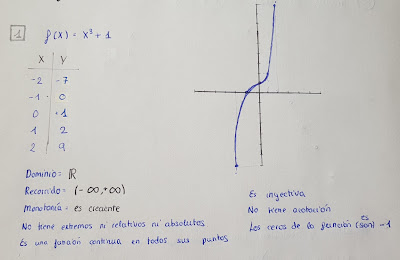 1 f(x) = x³ + 1
x y
-2 -7
-1 0
0 1
1 2
2 9
Dominio = ℝ
Recorrido = (-∞,+∞)
Monotonía = es creciente
No tiene extremos ni relativos ni absolutos
Es una función continua en todos sus puntos
Es inyectiva
No tiene acotación
es
Los ceros de la función (son) -1